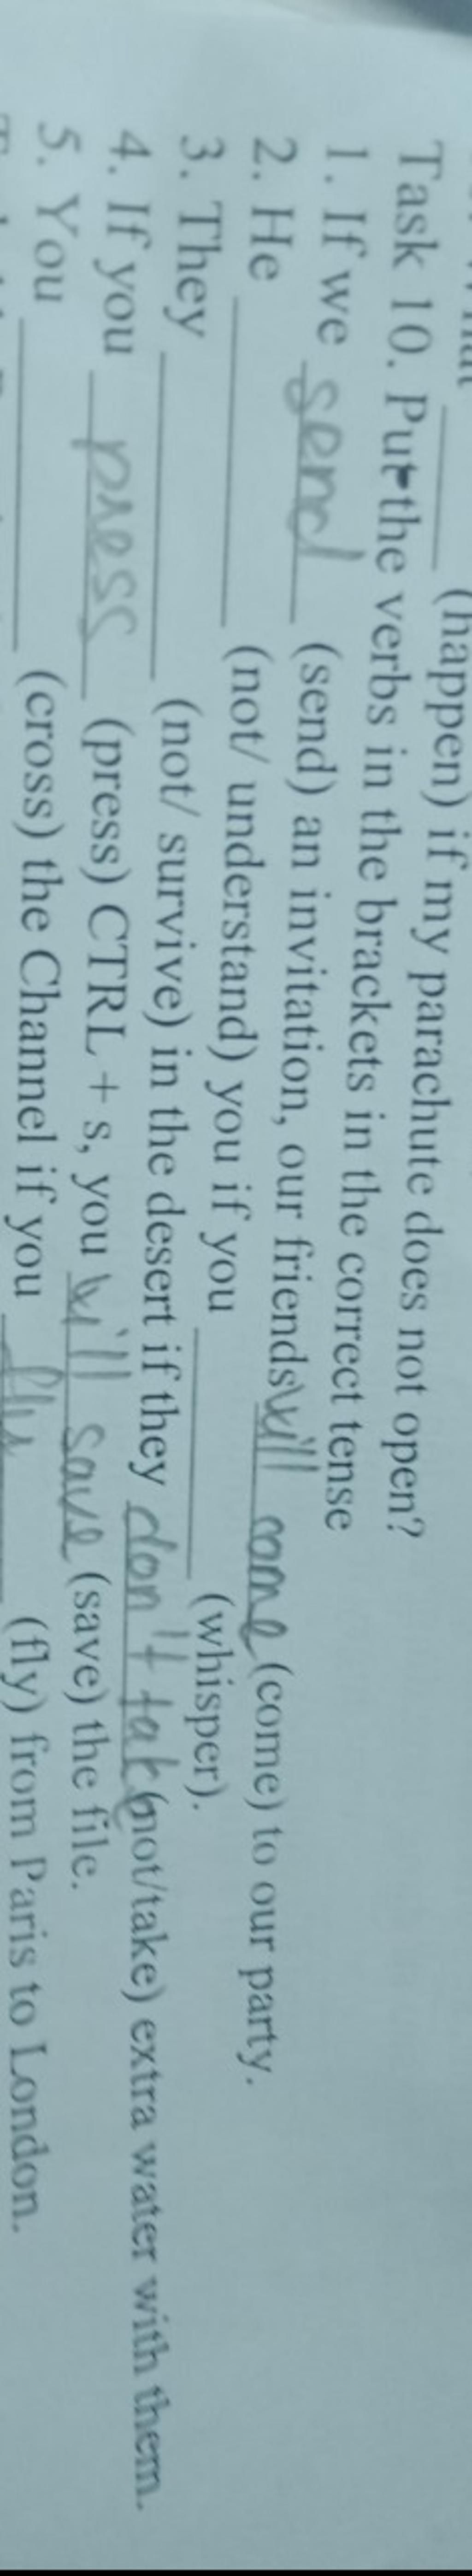 (happen) if my parachute does not open?
Task 10. Put the verbs in the brackets in the correct tense
1. If we send (send) an invitation, our friends will come (come) to our party.
2. He ________ (not/ understand) you if you ________ (whisper).
3. They ________ (not/ survive) in the desert if they don't take (not/take) extra water with them.
4. If you press (press) CTRL + s, you will save (save) the file.
5. You ________ (cross) the Channel if you fly (fly) from Paris to London.